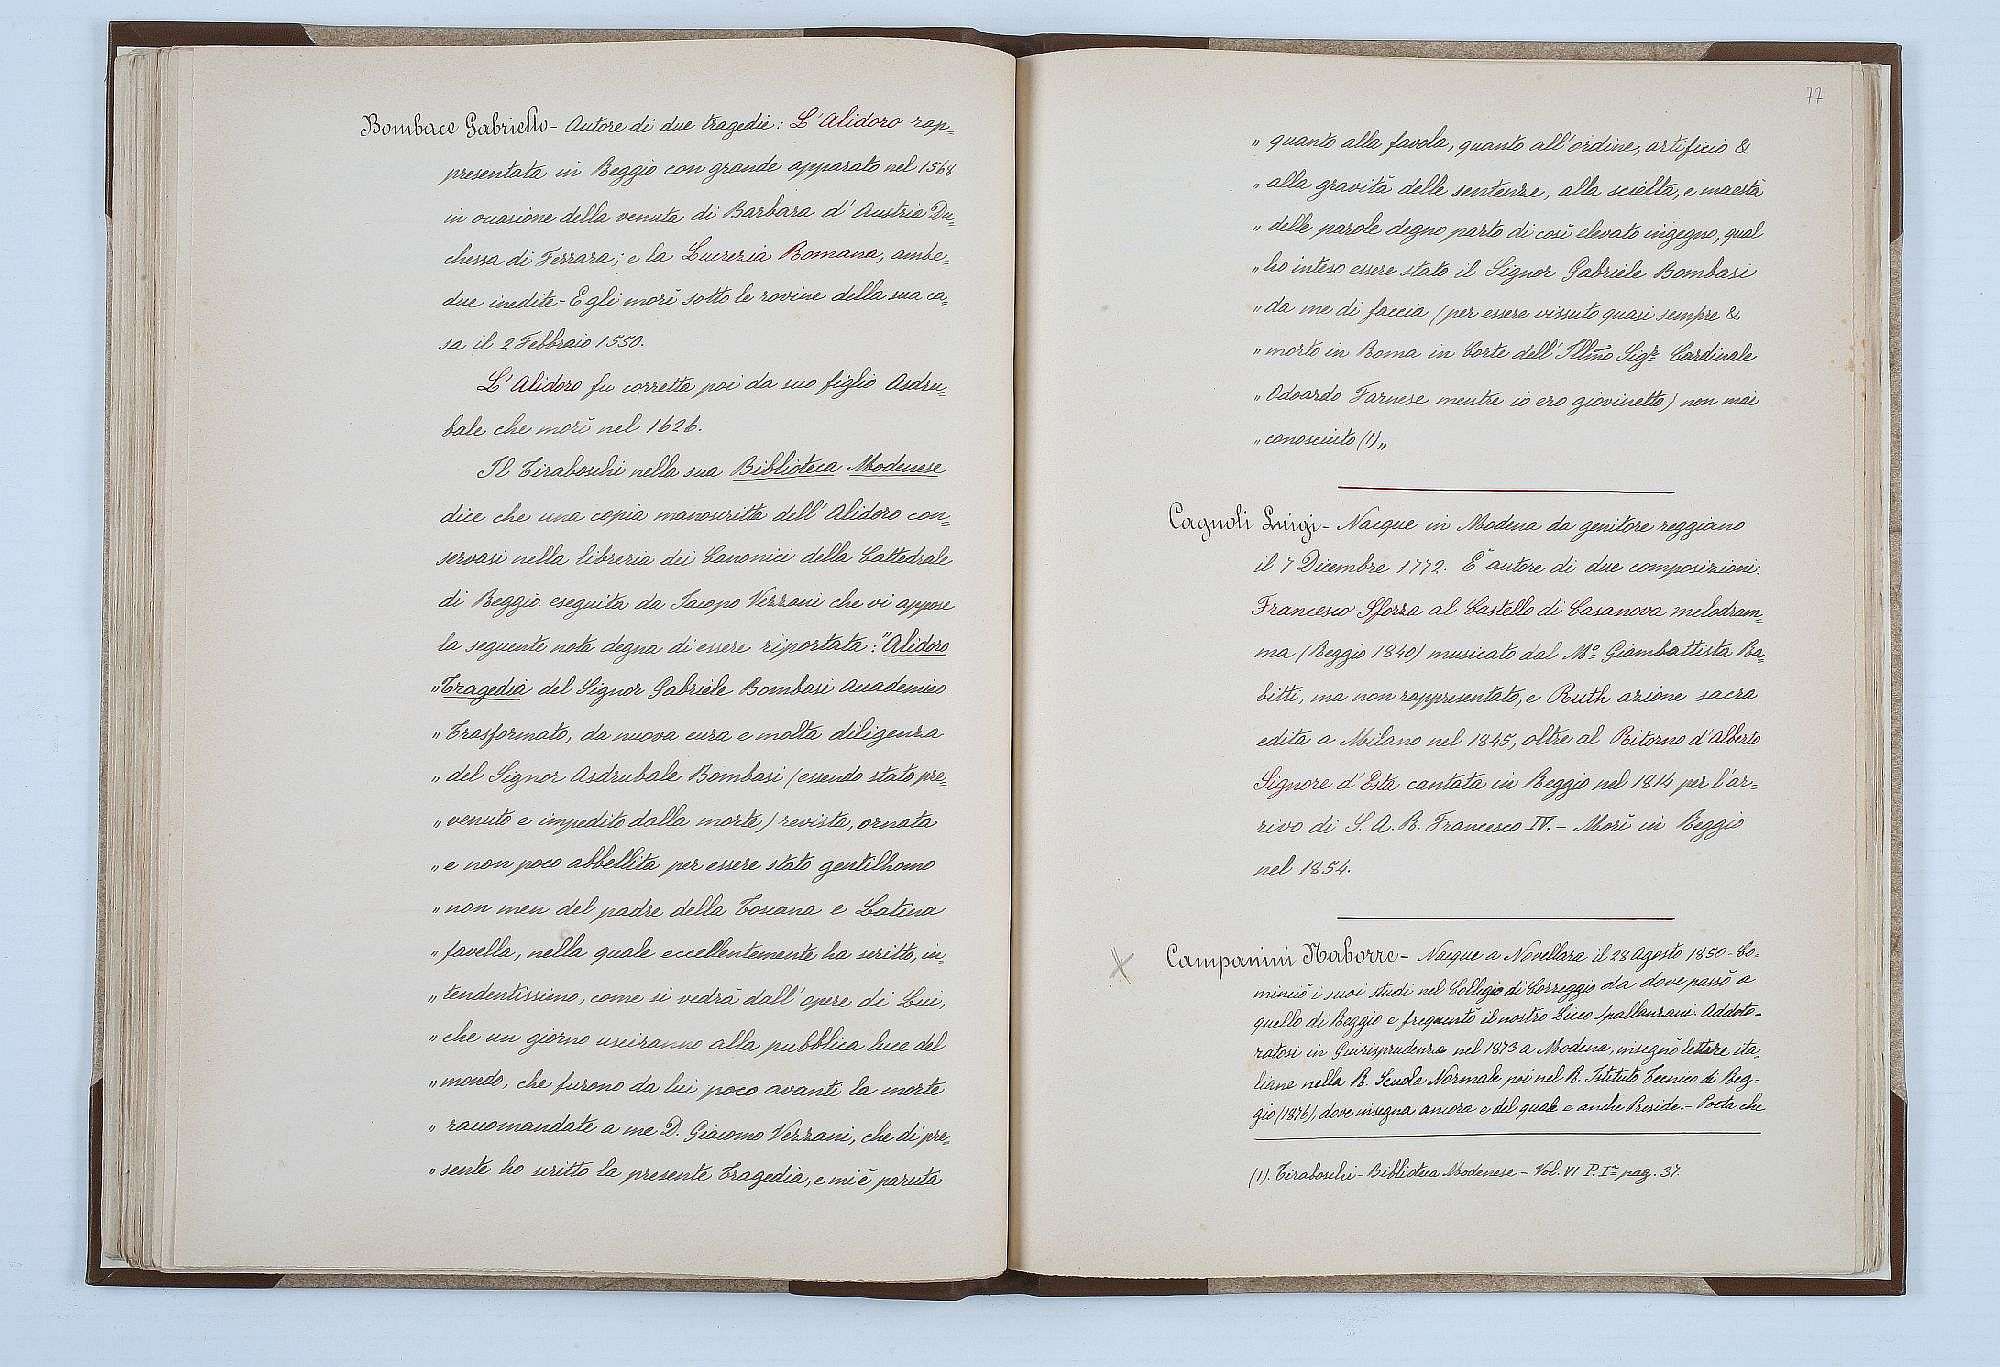 Bombace Gabriello - Autore di due tragedie: L'Alidoro rap-
presentata in Reggio con grande apparato nel 1568
in occasione della venuta di Barbara d'Austria Du-
chessa di Ferrara; e la Lucrezia Romana, ambe-
due inedite - Egli morì sotto le rovine della sua ca-
sa il 2 Febbraio 1550.
L'Alidoro fu corretta poi da suo figlio Asdru-
bale che morì nel 1626.
Il Tiraboschi nella sua Biblioteca Modenese
dice che una copia manoscritta dell'Alidoro con-
servasi nella libreria dei Canonici della Cattedrale
di Reggio eseguita da Jacopo Vezzani che vi appose
la seguente nota degna di essere riportata: "Alidoro
"Tragedia del Signor Gabriele Bombasi Academico
"Trasformato, da nuova cura e molta diligenza
"del Signor Asdrubale Bombasi (essendo stato pre-
"venuto e impedito dalla morte) revista, ornata
"e non poco abbellita per essere stato gentilhomo
"non men del padre della Toscana e Latina
"favella, nella quale eccellentemente ha scritto, in-
"tendentissimo, come si vedrà dall'opere di Lui,
"che un giorno usciranno alla pubblica luce del
"mondo, che furono da lui poco avanti la morte
"raccomandate a me D. Giacomo Vezzani, che di pre-
"sente ho scritto la presente Tragedia, e mi è paruta
77
"quanto alla favola, quanto all'ordine, artificio &
"alla gravità delle sentenze, alla scielta, e maestà
"delle parole degno parto di così elevato ingegno, qual
"ho inteso essere stato il Signor Gabriele Bombasi
"da me di faccia (per essere vissuto quasi sempre &
"morto in Roma in Corte dell'Ill.mo Sig.r Cardinale
"Odoardo Farnese mentre io ero giovinetto) non mai
"conosciuto (1)"
Cagnoli Luigi - Nacque in Modena da genitore reggiano
il 7 Dicembre 1772. È autore di due composizioni:
Francesco Sforza al Castello di Casanova melodram-
ma (Reggio 1840) musicato dal M.o Giambattista Ra-
bitti, ma non rappresentato, e Ruth azione sacra
edita a Milano nel 1845, oltre al Ritorno d'Alberto
Signore d'Este cantata in Reggio nel 1814 per l'ar-
rivo di S. A. R. Francesco IV. - Morì in Reggio
nel 1854.
Campanini Naborre - Nacque a Novellara il 28 Agosto 1850 - Co-
minciò i suoi studi nel Collegio di Correggio da dove passò a
quello di Reggio e frequentò il nostro Liceo Spallanzani. Addoto-
ratosi in Guirisprudenza nel 1873 a Modena, insegnò lettere ita-
liane nella R. Scuola Normale poi nel R. Istituto Tecnico di Reg-
gio (1876), dove insegna ancora e del quale è anche Preside. - Poeta che
(1). Tiraboschi - Biblioteca Modenese - Vol. VI P. I.a pag. 37.